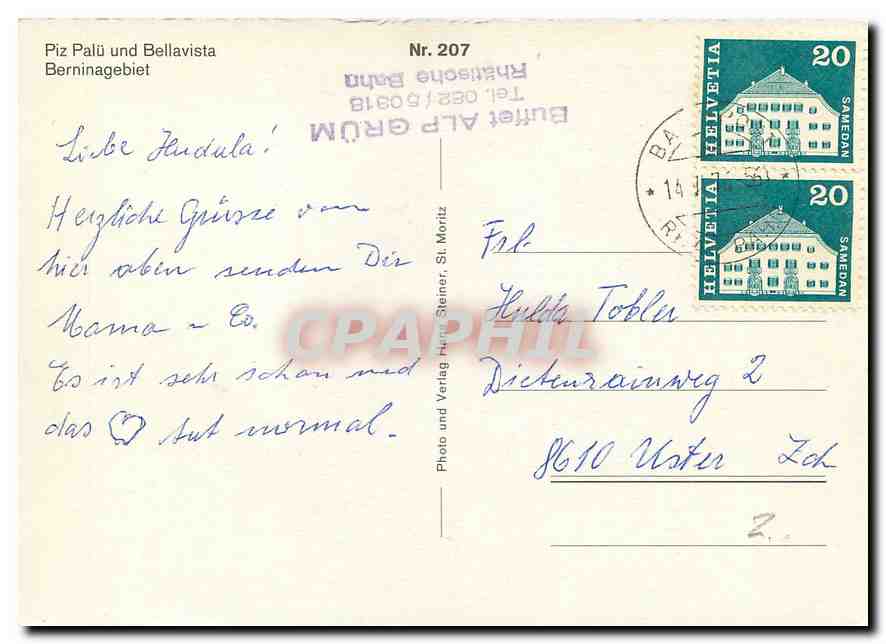 Piz Palü und Bellavista
Berninagebiet
Nr. 207
Buffet ALP GRÜM
Tel. 082 / 5 03 18
Rhätische Bahn
Liebe Huldula!
Herzliche Grüsse von
hier oben senden Dir
Mama & Co.
Es ist sehr schön und
das tut normal.
Photo und Verlag Hans Steiner, St. Moritz
HELVETIA
20
SAMEDAN
HELVETIA
20
SAMEDAN
14
Frl.
Hulda Tobler
Dietenrainweg 2
8610 Uster Zch
2..
CPAPHIL